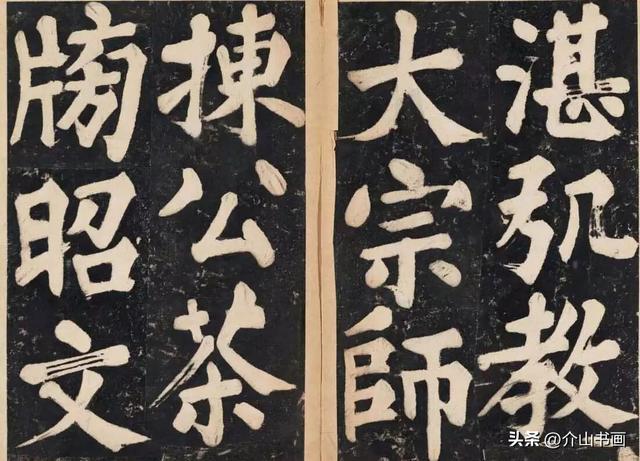 湛弘教
大宗師
揀公茶
牓昭文
头条 @介山书画